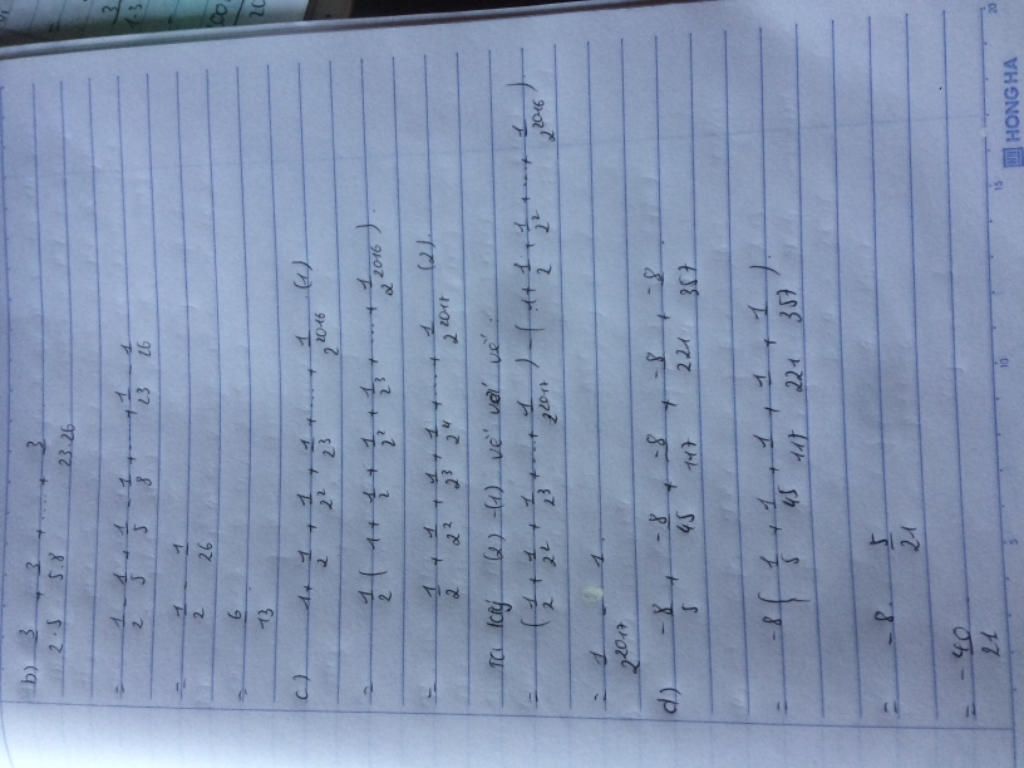 b) 3/2·5 + 3/5.8 + .... + 3/23.26
= 1/2 - 1/5 + 1/5 - 1/8 + .... + 1/23 - 1/26
= 1/2 - 1/26
= 6/13
c) 1 + 1/2 + 1/2² + 1/2³ + .... + 1/2²⁰¹⁶ (1)
= 1/2 ( 1 + 1/2 + 1/2² + 1/2³ + .... + 1/2²⁰¹⁶ ).
= 1/2 + 1/2² + 1/2³ + 1/2⁴ + .... + 1/2²⁰¹⁷ (2).
Ta lấy (2) - (1) vế với vế :
= ( 1/2 + 1/2² + 1/2³ + .... + 1/2²⁰¹⁷ ) - ( 1 + 1/2 + 1/2² + .... + 1/2²⁰¹⁶ )
= 1/2²⁰¹⁷ - 1.
d) -8/5 + -8/45 + -8/117 + -8/221 + -8/357
= -8 ( 1/5 + 1/45 + 1/117 + 1/221 + 1/357 ).
= -8 . 5/21
= -40/21
HONG HA
5 10 15 20